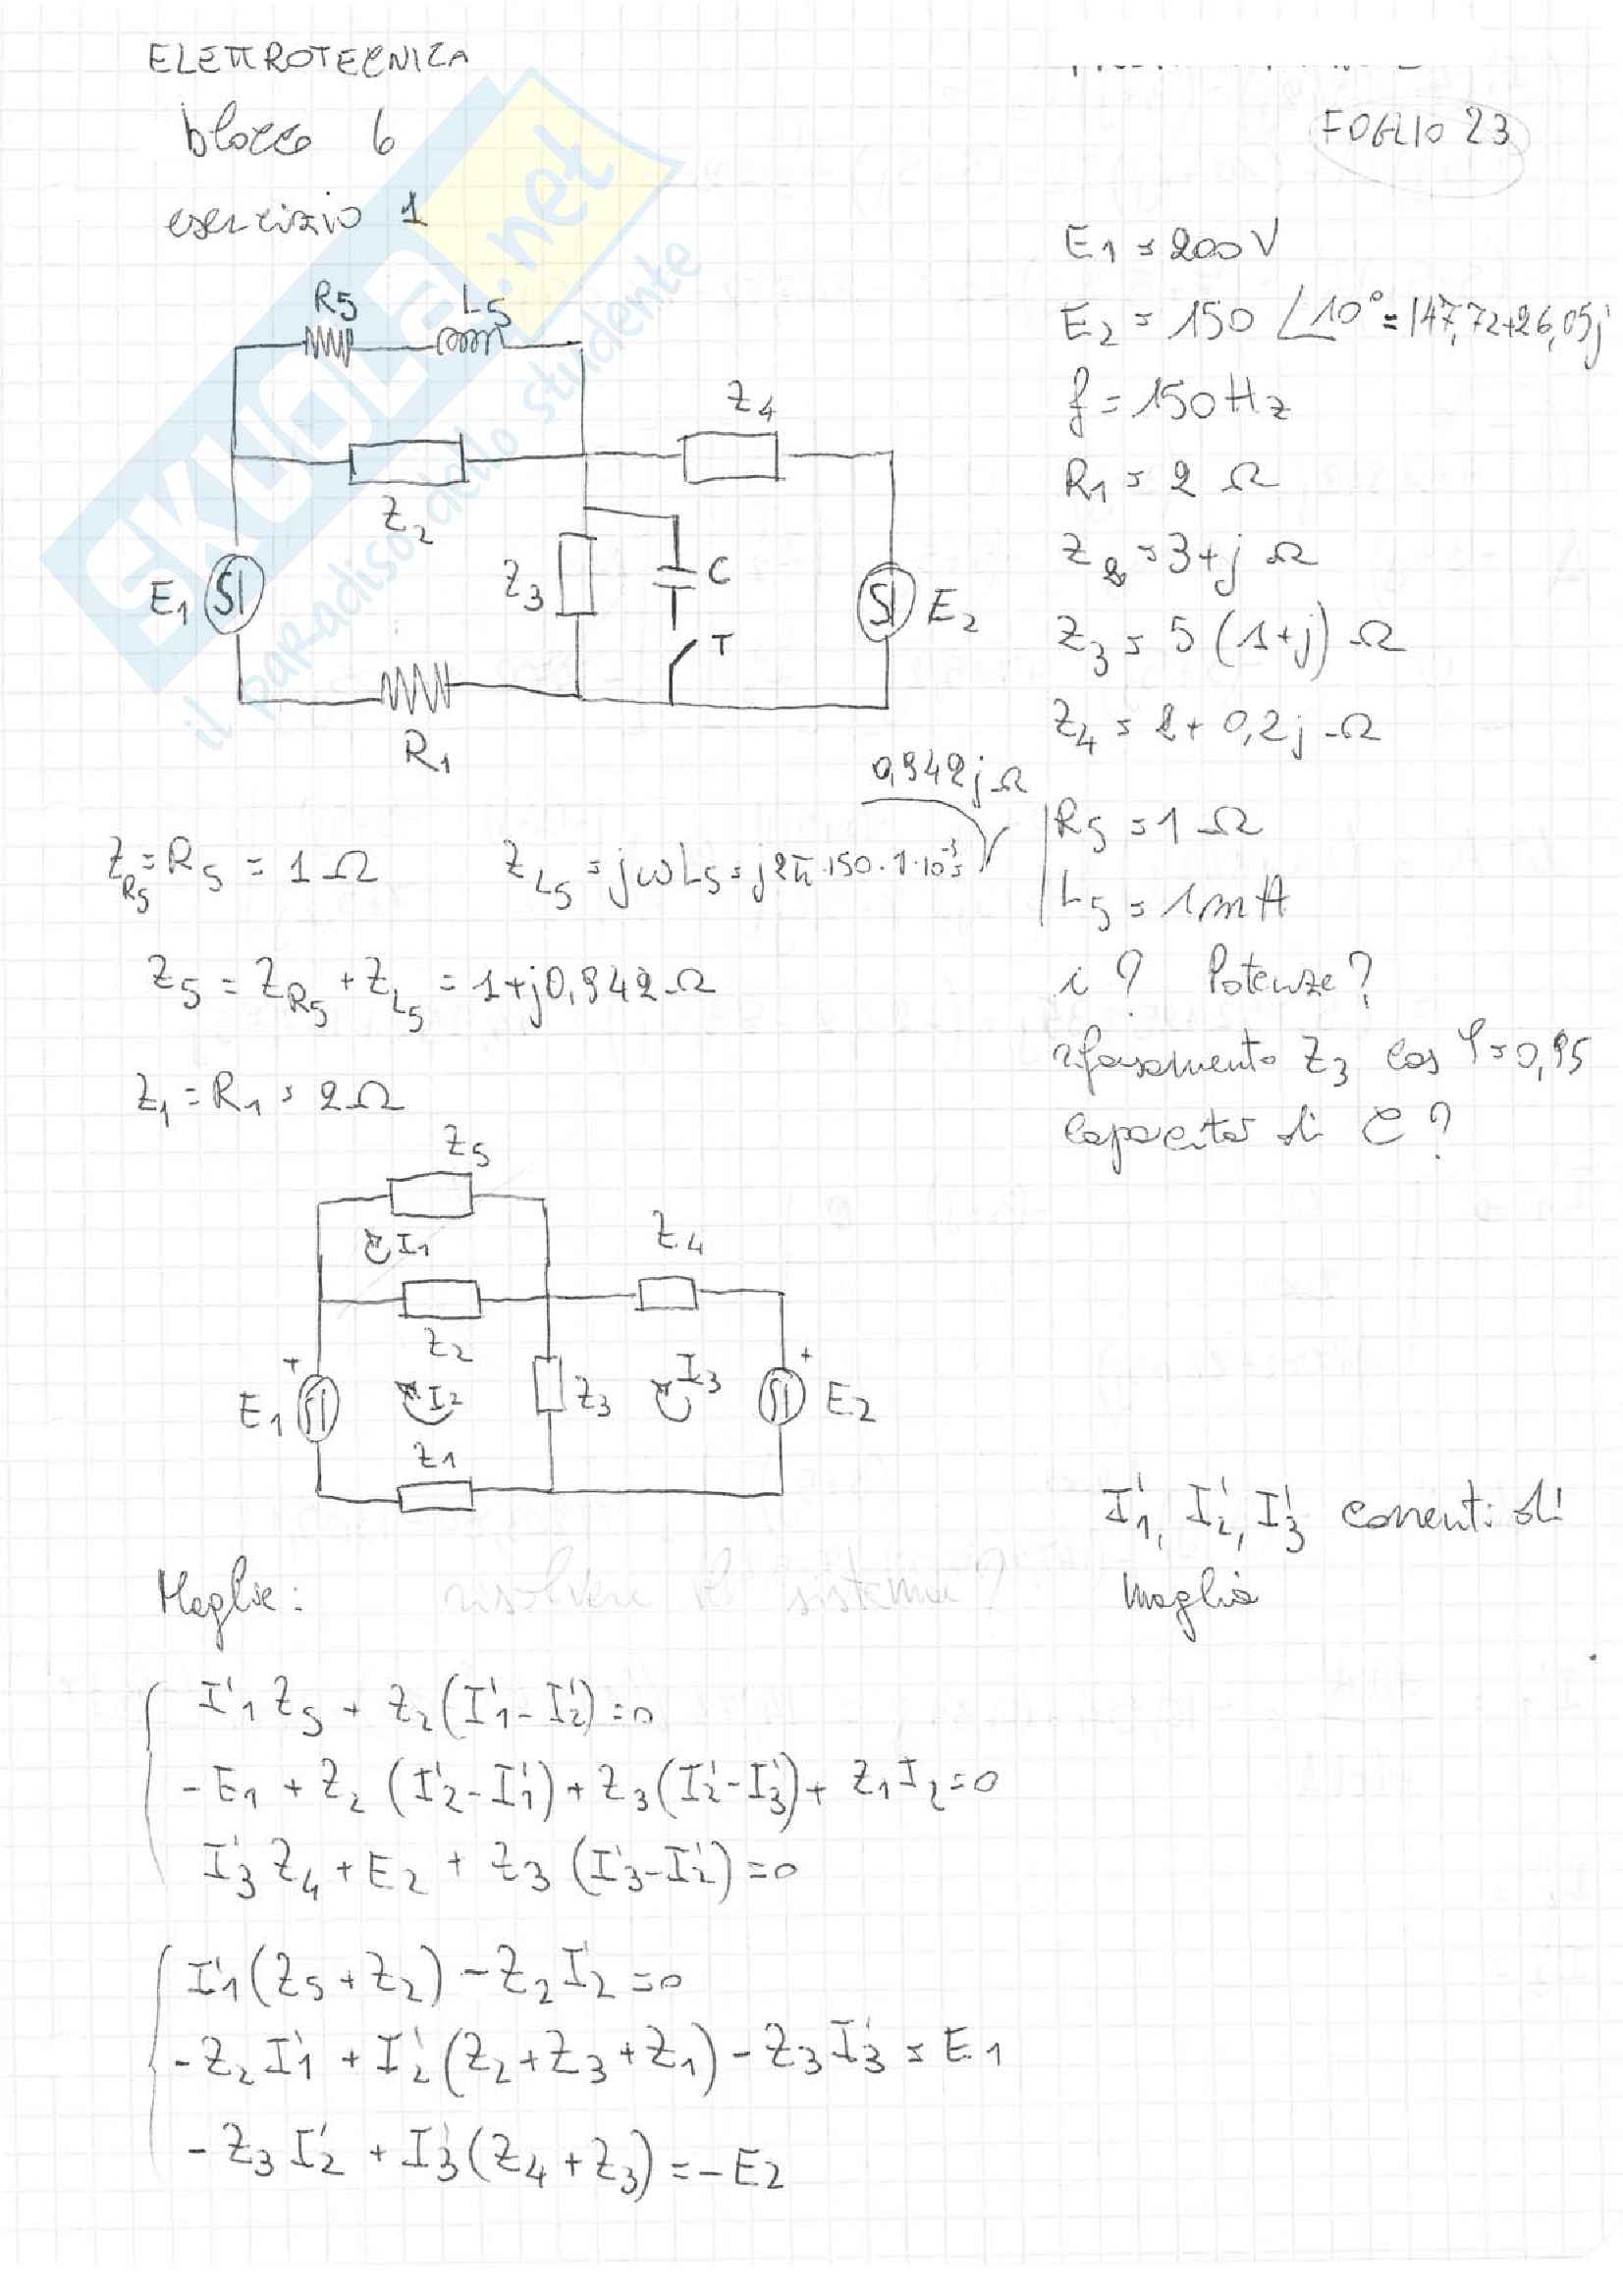 ELETTROTECNICA
blocco 6
FOGLIO 23
esercizio 1
SKUOLA.net
il paradiso dello studente
E1 = 200 V
E2 = 150 ∠10° = 147,72+26,05j
f = 150 Hz
R1 = 2 Ω
Z2 = 3+j Ω
Z3 = 5 (1+j) Ω
Z4 = 2+0,2j Ω
R5 = 1 Ω
L5 = 1 mH
i? Potenze?
rifasamento Z3 cos φ = 0,95
capacità di C?
R5 L5
Z4
Z2
E1 Z3 C E2
T
R1
0,942j Ω
ZR5 = R5 = 1 Ω ZL5 = jωL5 = j2π·150·1·10⁻³ =
Z5 = ZR5 + ZL5 = 1+j0,942 Ω
Z1 = R1 = 2 Ω
Z5
I1 Z4
Z2
+ I3 +
E1 I2 Z3 E2
Z1
I'1, I'2, I'3 correnti di
maglia
Maglie: risolvere il sistema?
I'1 Z5 + Z2 (I'1 - I'2) = 0
-E1 + Z2 (I'2 - I'1) + Z3 (I'2 - I'3) + Z1 I2 = 0
I'3 Z4 + E2 + Z3 (I'3 - I'2) = 0
I'1 (Z5 + Z2) - Z2 I'2 = 0
-Z2 I'1 + I'2 (Z2 + Z3 + Z1) - Z3 I'3 = E1
-Z3 I'2 + I'3 (Z4 + Z3) = -E2